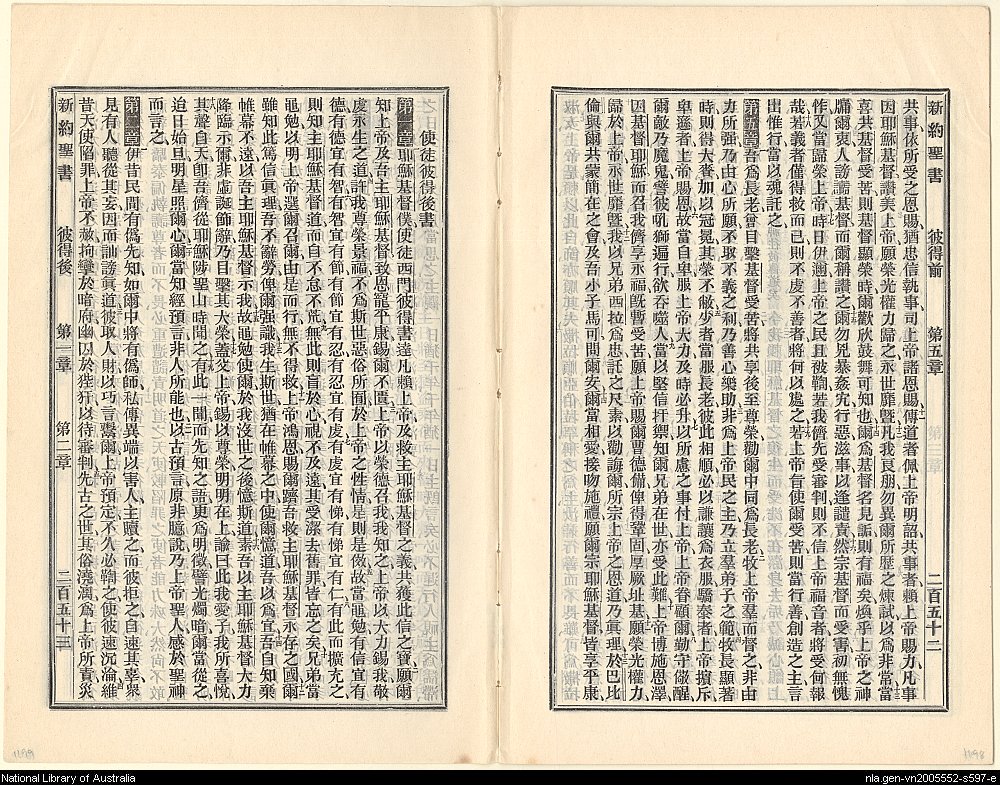 新約聖書 彼得前 第五章 二百五十二
共事依所受之恩賜猶忠信執事司上帝諸恩賜傳道者佩上帝明詔共事者賴上帝賜力凡事
因耶穌基督讚美上帝願榮光權力歸之永世靡曁凡我良朋勿異爾所歷之煉試以爲非常當
喜共基督受苦則基督顯榮時爾歡欣鼓舞可知也爾爲基督名見詬則有福矣煥乎上帝之神
牖爾衷人謗讟基督而爾稱讚之爾勿兇暴姦宄行惡滋事以逢譴責然宗基督而受害初無愧
怍又當歸榮上帝時日伊邇上帝之民且被鞫若我儕先受審判則不信上帝福音者將受何報
哉若義者僅得救而已則不虔不善者將何以處之若上帝旨使爾受苦則當行善創造之主言
出惟行當以魂託之
第五章吾爲長老曾目擊基督受苦將共享後至尊榮勸爾中同爲長老牧上帝羣而督之非由
力所强乃由心所願不取不義之利乃善心樂助非爲上帝民之主乃立羣弟子之範牧長顯著
時則得大賚加以冠冕其榮不敝少者當服長老彼此相順必以謙讓爲衣服驕泰者上帝擯斥
卑遜者上帝賜恩故當自卑服上帝大力及時必升以所慮之事付上帝上帝眷顧爾勤守儆醒
爾敵乃魔鬼譬彼吼獅遍行欲吞噬人當以堅信扞禦知爾兄弟在世亦受此難上帝博施恩澤
因基督耶穌而召我儕享永福旣暫受苦願上帝賜爾曹德備俾得鞏固厚厥址基願榮光權力
歸於上帝永世靡曁我以兄弟西拉爲忠託之尺素以勸誨爾所宗上帝之恩道乃眞理於巴比
倫與爾共蒙簡在之會及吾小子馬可問爾安爾當相愛接吻施禮願爾宗耶穌基督皆享平康
使徒彼得後書
第一章耶穌基督僕使徒西門彼得書達凡賴上帝及救主耶穌基督之義共獲此信之寶願爾
知上帝及吾主耶穌基督致恩寵平康錫爾不匱上帝以榮德召我我知之上帝以大力錫我敬
虔永生之道許我尊榮景福不爲斯世惡俗所囿於上帝之性情是則是傚故當黽勉有信宜有
德有德宜有智有智宜有節有節宜有忍有忍宜有虔有虔宜有悌有悌宜有仁有此而擴充之
則知主耶穌基督道而自不怠不荒無此則盲於心視不及遠其受潔去舊罪皆忘之矣兄弟當
黽勉以明上帝選爾召爾由是而行無不得救上帝鴻恩賜爾躋吾救主耶穌基督永存之國爾
雖知此篤信眞理吾不辭勞俾爾强識我生斯世猶在帷幕之中使爾憶道吾以爲宜吾自知棄
帷幕不遠以吾主耶穌基督示我故黽勉使爾於我沒世之後憶斯道素吾以主耶穌基督大力
降臨示爾非虛誕飾辭乃目擊其大榮蓋父上帝錫以尊榮明明在上諭曰此我愛子我所喜悅
其聲自天卽吾儕從耶穌陟聖山時聞之有此一聞而先知之語更爲明徵譬光燭暗爾當從之
迨日始旦明星照爾心爾當知經預言非人所能也以古預言原非臆說乃上帝聖人感於聖神
而言之
第二章伊昔民間有僞先知如爾中將有僞師私傳異端以害人主贖之而彼拒之自速其辜衆
見有人聽從其妄因而訕謗眞道彼取人財以巧言鬻爾上帝預定不久必鞫之使彼速沉淪維
昔天使陷罪上帝不赦拘攣於暗府幽囚於狴犴以待審判先古之世其俗澆漓爲上帝所責災
新約聖書 彼得後 第一章 第二章 二百五十三
National Library of Australia
nla.gen-vn2005552-s597-e